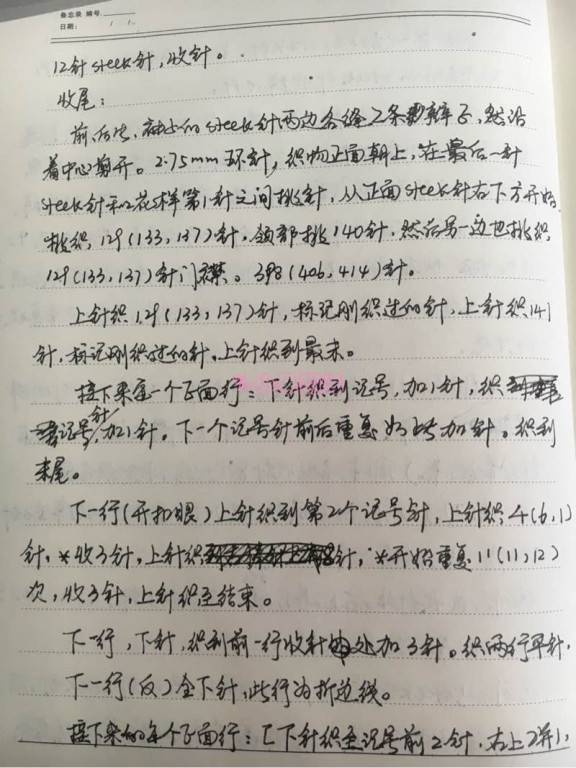 备忘录 编号
日期: / /.
12针steek针,收针。
收尾:
前,后片,袖上的steek针两边各缝2条辫子,然沿
着中心剪开。2.75mm环针,织物正面朝上,在最后一针
steek针和花样第1针之间挑针,从正面steek针右下方开始
挑织,129(133,137)针,领部挑140针,然后另一边也挑织
129(133,137)针门襟。398(406,414)针。
上针织129(133,137)针,标记刚织过的针,上针织141
针,标记刚织过的针,上针织到最末。
接下来每一个正面行:下针织到记号,加1针,织
记号针,加1针。下一个记号针前后重复如此加针。织到
末尾。
下一行(开扣眼)上针织到第2个记号针,上针织4(6,1)
针,*收3针,上针织8针,*开始重复11(11,12)
次,收3针,上针织至结束。
下一行,下针,织到前一行收针处加3针。织两行平针,
下一行(反)全下针,此行为折边线。
接下来的每个正面行:[下针织至记号前2针,右上2并1,